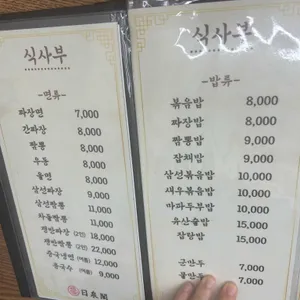 식사부
-면류-
짜장면 7,000
간짜장 8,000
짬뽕 8,000
우동 8,000
울면 8,000
삼선짜장 9,000
삼선짬뽕 11,000
차돌짬뽕 11,000
쟁반짜장 (2인) 18,000
쟁반짬뽕 (2인) 22,000
중국냉면 (여름) 12,000
콩국수 (여름) 9,000
日泉閣
식사부
-밥류-
볶음밥 8,000
짜장밥 8,000
짬뽕밥 9,000
잡채밥 9,000
삼선볶음밥 10,000
새우볶음밥 10,000
마파두부밥 10,000
유산슬밥 15,000
잡탕밥 15,000
군만두 7,000
물만두 7,000